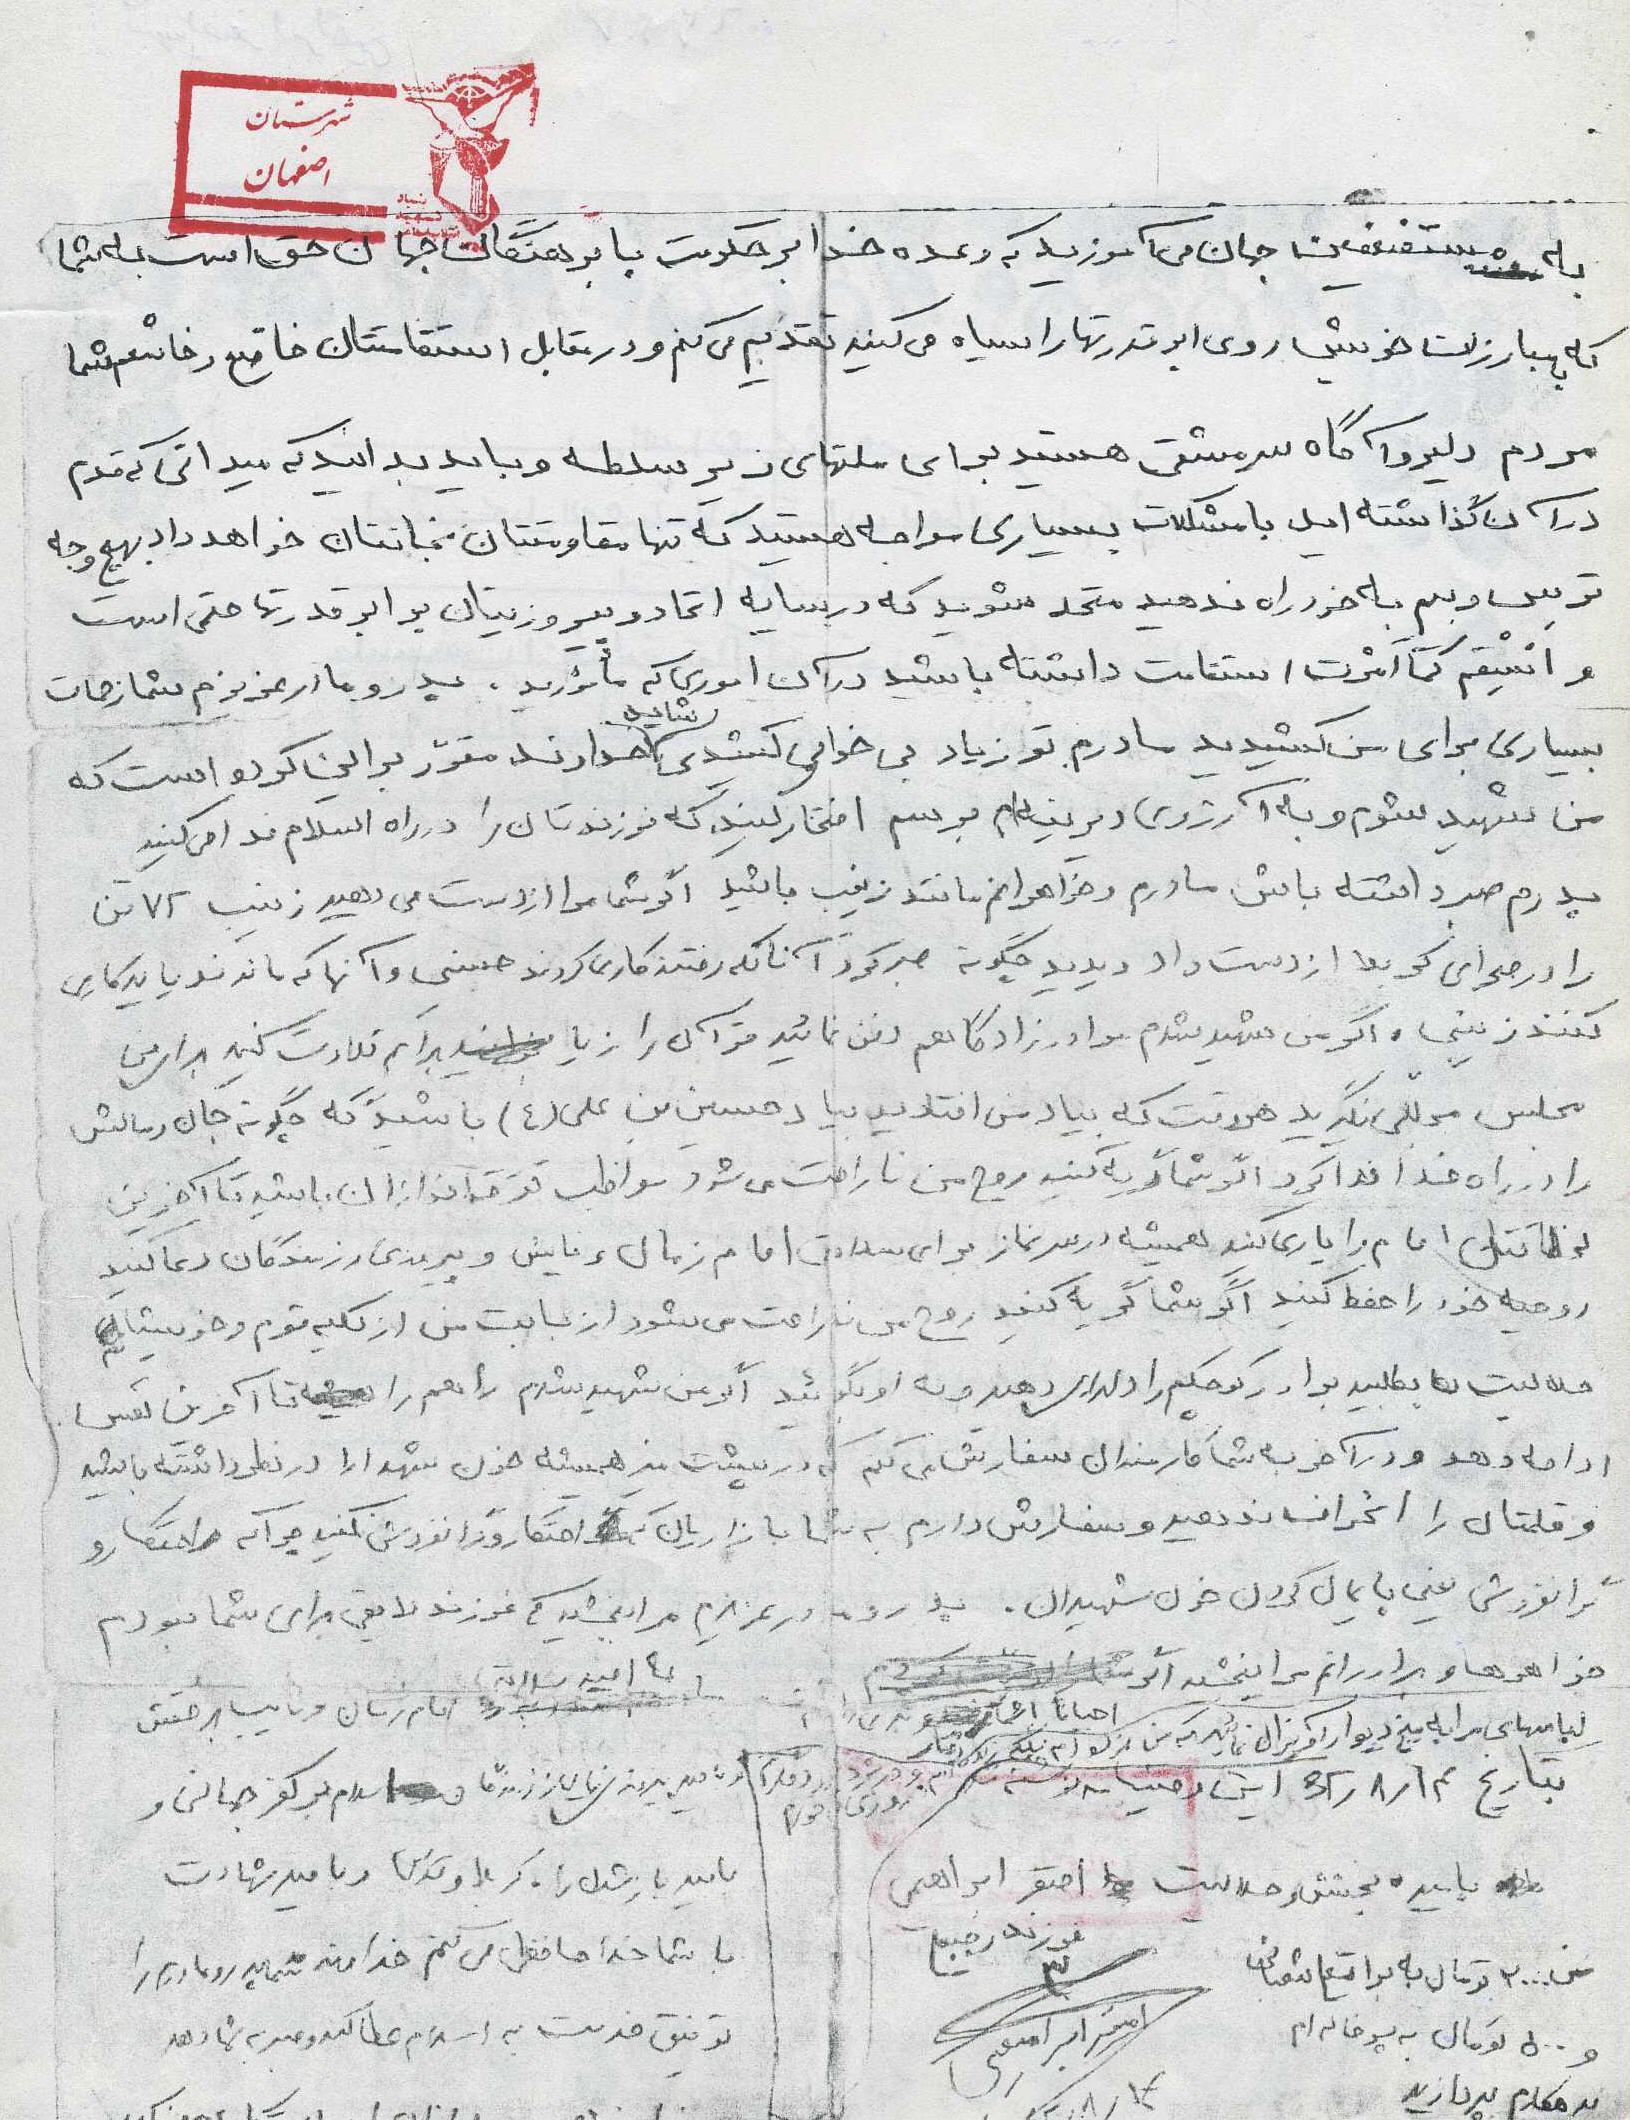 شهرستان
اصفهان
به مستضعفین جهان می آموزید که وعده خدا بر حکومت پا برهنگان جهان حق است به شما
که بمبارزات خویش روی ابرقدرتها را سیاه می کنید تقدیم می کنم و در مقابل استقامتتان خاضع و خاشعم شما
مردم دلیر و آگاه سرمشقی هستید برای ملتهای زیر سلطه و باید بدانید که میدانی که قدم
در آن گذاشته اید با مشکلات بسیاری مواجه هستید که تنها مقاومتتان نجاتتان خواهد داد بهیچ وجه
ترس و بیم به خود راه ندهید متحد شوید که در سایه اتحاد و پیروزیتان بر ابرقدرتها حتمی است
و اَسْتَقِم کَمآ اُمِرْتَ استقامت داشته باشید در آن اموری که مأمورید . پدر و مادر عزیزم شما زحمات
بسیاری برای من کشیدید مادرم تو زیاد بی خوابی کشیدی شاید خداوند مقدّر بر این کرده است که
من شهید شوم و به آرزوی دیرینه ام برسم افتخار کنید که فرزندتان را در راه اسلام فدا می کنید
پدرم صبر داشته باش مادرم و خواهرانم مانند زینب باشید اگر شما مرا از دست می دهید زینب ۷۲ تن
را در صحرای کربلا از دست داد دیدید چگونه صبر کرد آنانکه رفتند کاری کردند حسینی و آنها که ماندند باید کاری
کنند زینبی . اگر من شهید شدم مرا در زادگاهم دفن نمائید قرآن را زیاد برایم تلاوت کنید برای من
مجلس مجللی نگیرید هر وقت که بیاد من افتادید بیاد حسین بن علی (ع) باشید که چگونه جان و مالش
را در راه خدا فدا کرد اگر شما گریه کنید روح من ناراحت می شود مواظب تفرقه اندازان باشید تا آخرین
امام را یاری کنید همیشه در سر نماز برای سلامتی امام زمان و نایبش و پیروزی رزمندگان دعا کنید
روحیه خود را حفظ کنید اگر شما گریه کنید روح من ناراحت می شود از بابت من از کلیه قوم و خویشان
حلالیت بطلبید برادر کوچکم را دلداری دهید و به او بگوئید اگر من شهید شدم راهم را تا آخرین نفس
ادامه دهد و در آخر به شما کارمندان سفارش می کنم که در پشت میز همیشه خون شهدا را در نظر داشته باشید
و قلمتان را انحراف ندهید و سفارش دارم به شما بازاریان که احتکار و گرانفروشی نکنید چرا که احتکار و
گرانفروشی یعنی پایمال کردن خون شهیدان . پدر و مادر عزیزم مرا ببخشید که فرزند لایقی برای شما نبودم
خواهرها و برادرانم مرا ببخشید اگر
به امید سلامتی
امام زمان و نایب بر حقش
لباسهای مرا به میخ دیوار آویزان نمائید
بتاریخ ۶۲/۸/۱۴ این وصیتنامه
اسلام بر کفر جهانی و
بامید بخشش و حلالیت اصغر ابراهیمی
فرزند
بامید باز شدن راه کربلا و قدس و با امید شهادت
با شما خدا حافظی می کنم خداوند شما پدر و مادرم را
توفیق خدمت به اسلام عطا کند و صبر به شما دهد
۲۰۰۰ تومان به
و ۵۰۰ تومان به پسر خاله ام
بدهکارم بپردازید
اصغر ابراهیمی